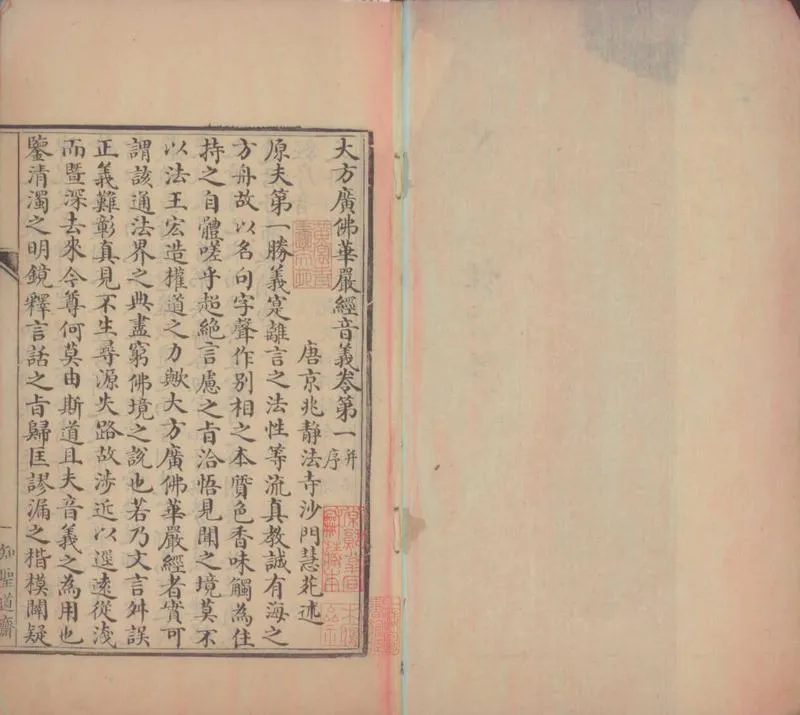 大方廣佛華嚴經音義卷第一并序
唐京兆静法寺沙門慧苑述
原夫第一勝義寔離言之法性等流真教誠有海之
方舟故以名句字聲作别相之本質色香味觸為住
持之自體嗟乎超絶言慮之旨洽悟見聞之境莫不
以法王宏造權道之力歟大方廣佛華嚴經者實可
謂該通法界之典盡窮佛境之說也若乃文言舛誤
正義難彰真見不生尋源失路故涉近以遥遠從淺
而暨深去來今尊何莫由斯道且夫音義之為用也
鑒清濁之明鏡釋言話之旨歸匡謬漏之楷模闢疑
知聖道齋